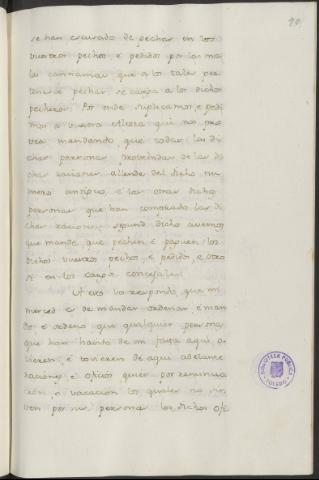 90
se han escusado de pechar en los
vuestros pechos, e pedidos por las
cartas que a los tales per
pechar se carga a los dichos
pecheros. Por ende suplicamos, e pedi
mos a vuestra Alteza que nos pro
vea mandando, que todas las di
chas personas proveidas de las di
chas raciones allende del dicho nu
mero antiguo, e las otras dichas
personas que han comprado las di
chas raciones, segund dicho avemos
que mande, que pechen e paguen los
dichos vuestros pechos, e pedidos, e otro
si en los concejales
A esto vos respondo, que mi
merced es de mandar ordenar, e man
do, e ordeno que qualquier personas
que han havido de mi fasta aqui, o
ovieren, e tovieren de aqui adelante
raciones, e oficios quier por renuncia
cion, o vacacion los quales no sir
ven por sus personas los dichos ofi
BIBLIOTECA PUBLICA
TOLEDO